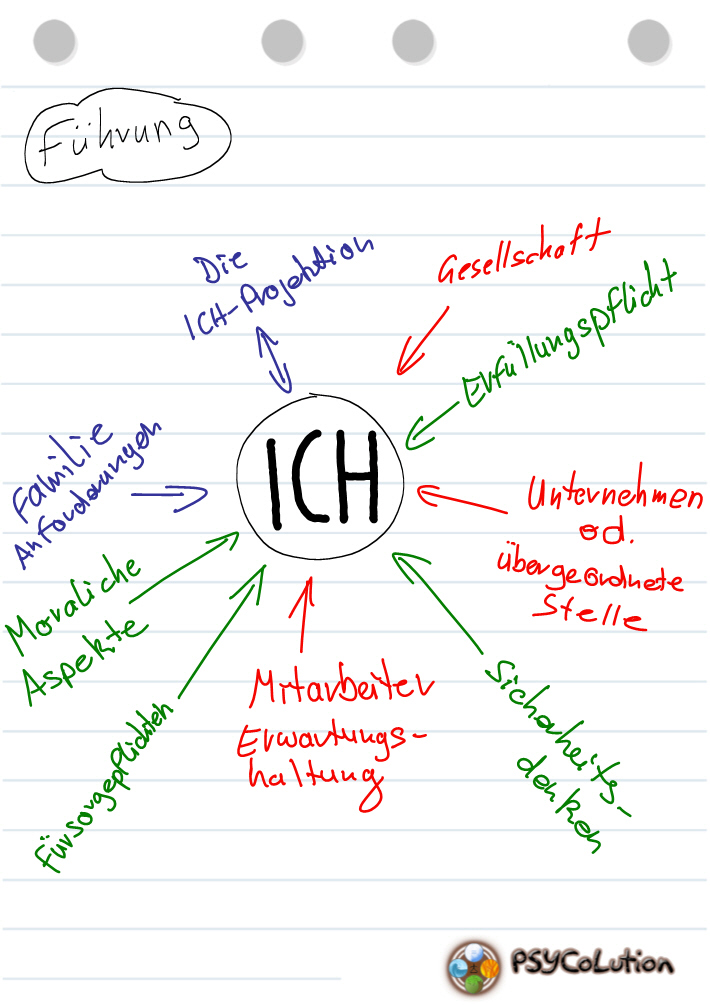 Führung
Die
ICH-Projektion
Gesellschaft
Erfüllungspflicht
ICH
Familie
Anforderungen
Unternehmen
od.
übergeordnete
Stelle
Moraliche
Aspekte
Fürsorgepflichten
Mitarbeiter
Erwartungs-
haltung
Sicherheits-
denken
PSYCoLution